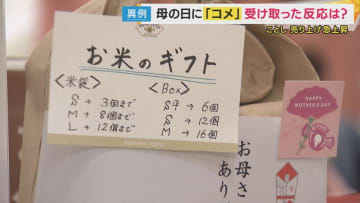 異例
母の日に「コメ」受け取った反応は?
ことし売り上げ急上昇
お米のギフト
<米袋>
S → 3個まで
M → 8個まで
L → 12個まで
<Box>
S平 → 6個
S → 12個
M → 16個
HAPPY
MOTHER'S DAY
お母さ
あり